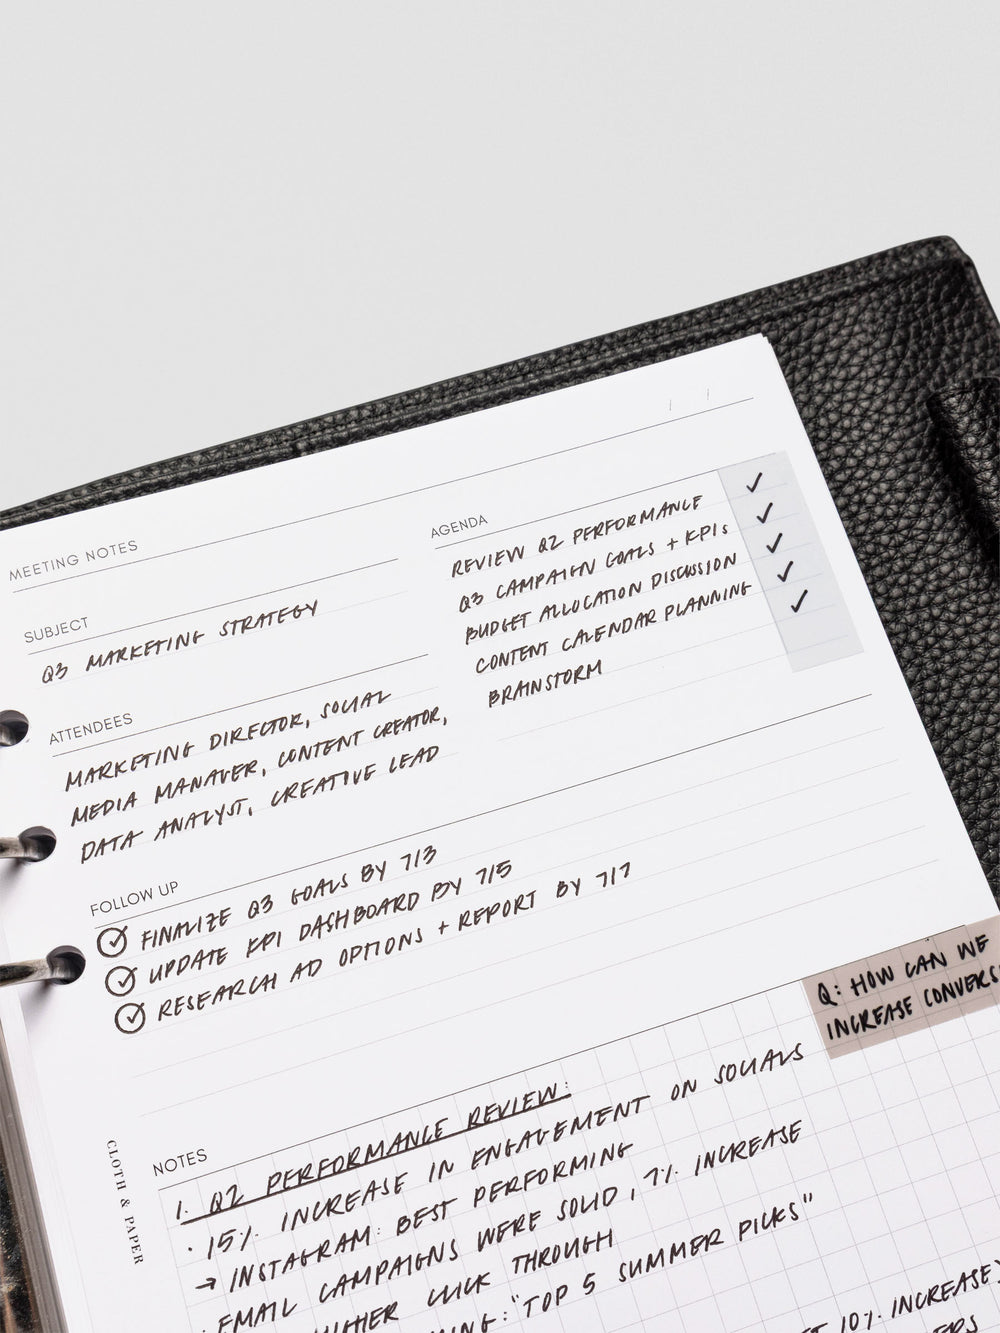 MEETING NOTES
SUBJECT
Q3 MARKETING STRATEGY
AGENDA
REVIEW Q2 PERFORMANCE ✓
Q3 CAMPAIGN GOALS + KPIs ✓
BUDGET ALLOCATION DISCUSSION ✓
CONTENT CALENDAR PLANNING ✓
BRAINSTORM ✓
ATTENDEES
MARKETING DIRECTOR, SOCIAL
MEDIA MANAGER, CONTENT CREATOR,
DATA ANALYST, CREATIVE LEAD
FOLLOW UP
FINALIZE Q3 GOALS BY 7/3
UPDATE KPI DASHBOARD BY 7/5
RESEARCH AD OPTIONS + REPORT BY 7/7
Q: HOW CAN WE
INCREASE CONVERS
NOTES
1. Q2 PERFORMANCE REVIEW:
· 15% INCREASE IN ENGAGEMENT ON SOCIALS
→ INSTAGRAM: BEST PERFORMING
· EMAIL CAMPAIGNS WERE SOLID, 7% INCREASE
HIGHER CLICK THROUGH
: "TOP 5 SUMMER PICKS"
10% INCREASE
CLOTH & PAPER